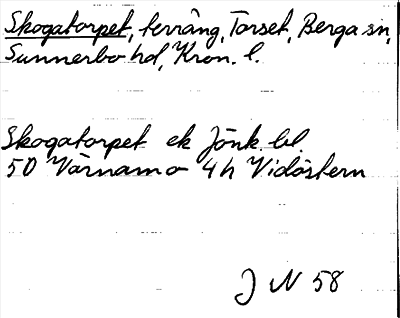 Skogatorpet, terräng, Torset, Berga sn,
Sunnerbo hd, Kron. l.
Skogatorpet ek Jönk. bl.
50 Värnamo 4h Vidöstern
J N 58